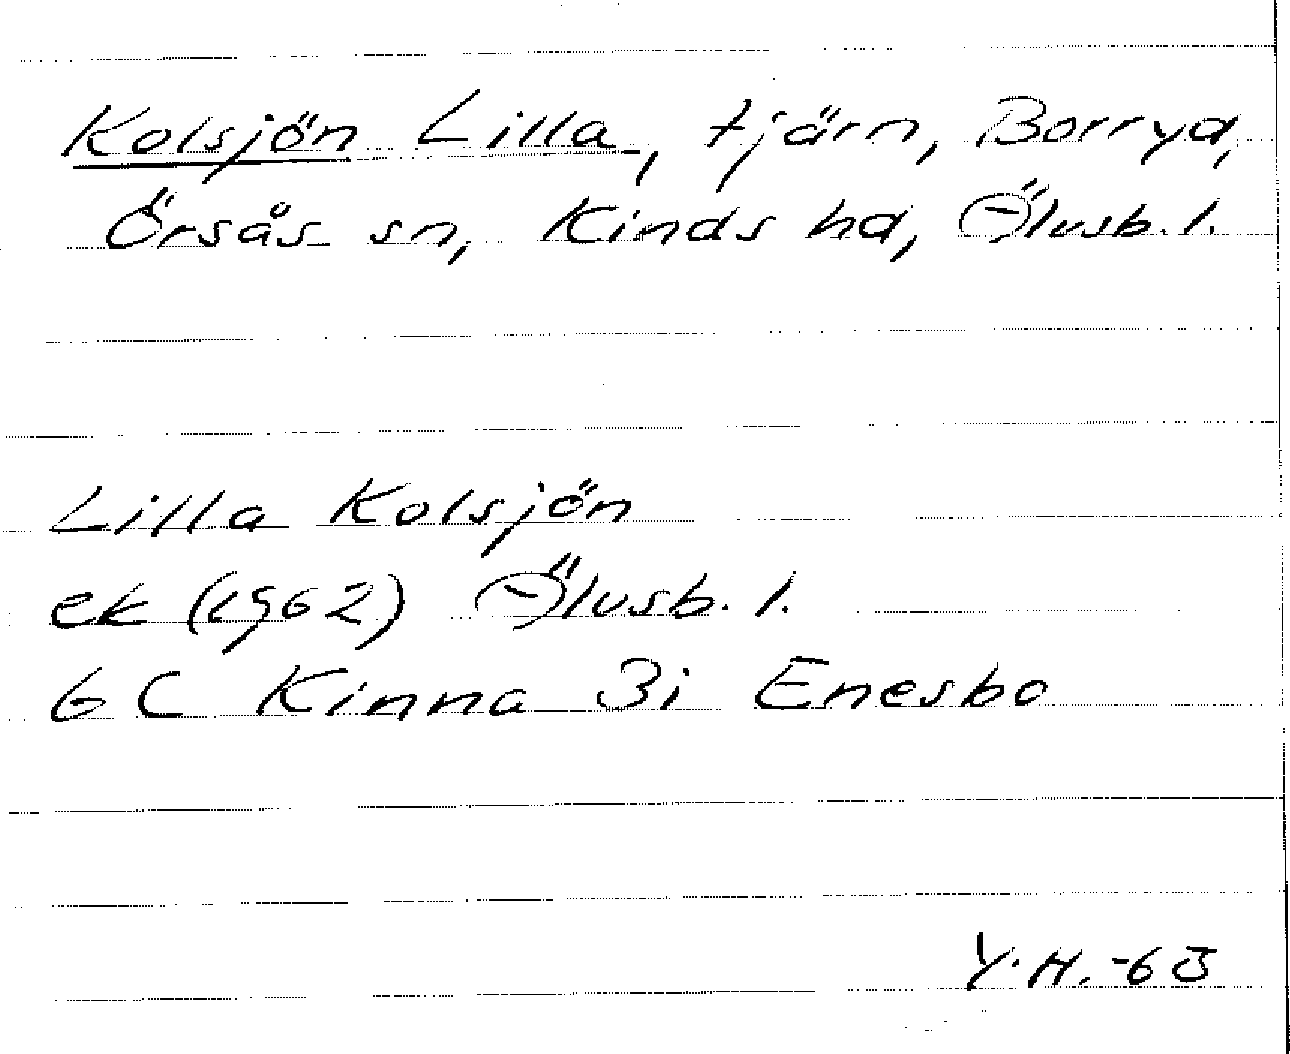 Kolsjön Lilla, tjärn, Borryd,
Örsås sn, Kinds hd, Älvsb. l.
Lilla Kolsjön
ek (1962) Älvsb. l.
6 C Kinna 3i Enesbo
Y.H. -63